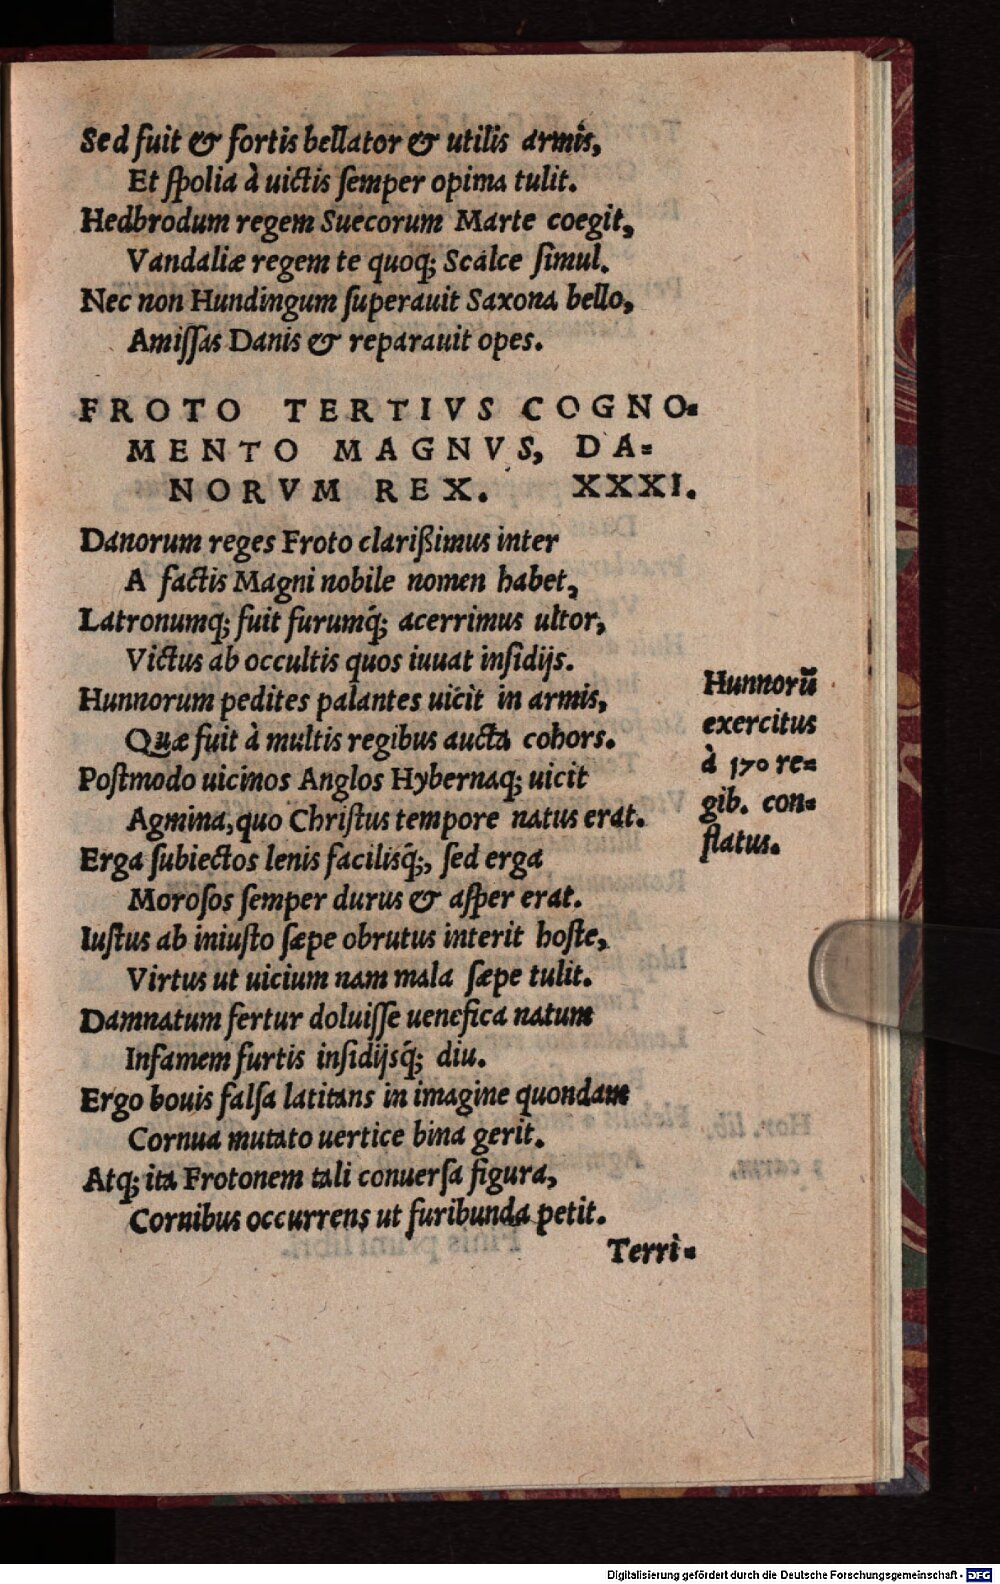 Sed fuit & fortis bellator & utilis armis,
Et ſpolia à uictis ſemper opima tulit.
Hedbrodum regem Suecorum Marte coegit,
Vandaliæ regem te quoq; Scalce ſimul.
Nec non Hundingum ſuperauit Saxona bello,
Amiſſas Danis & reparauit opes.
FROTO TERTIVS COGNO=
MENTO MAGNVS, DA=
NORVM REX. XXXI.
Danorum reges Froto clarißimus inter
A factis Magni nobile nomen habet,
Latronumq; fuit furumq́; acerrimus ultor,
Victus ab occultis quos iuuat inſidijs.
Hunnorum pedites palantes uicit in armis,
Quæ fuit à multis regibus aucta cohors.
Poſtmodo uicinos Anglos Hybernaq; uicit
Agmina, quo Chriſtus tempore natus erat.
Erga ſubiectos lenis facilisq́;, ſed erga
Moroſos ſemper durus & aſper erat.
Iuſtus ab iniuſto ſæpe obrutus interit hoſte,
Virtus ut uicium nam mala ſæpe tulit.
Damnatum fertur doluiſſe uenefica natum
Infamem furtis inſidijsq́; diu.
Ergo bouis falſa latitans in imagine quondam
Cornua mutato uertice bina gerit.
Atq; ita Frotonem tali conuerſa figura,
Cornibus occurrens ut furibunda petit.
Terri=
Hunnorū
exercitus
à 170 re=
gib. con=
flatus.
Digitalisierung gefördert durch die Deutsche Forschungsgemeinschaft - DFG